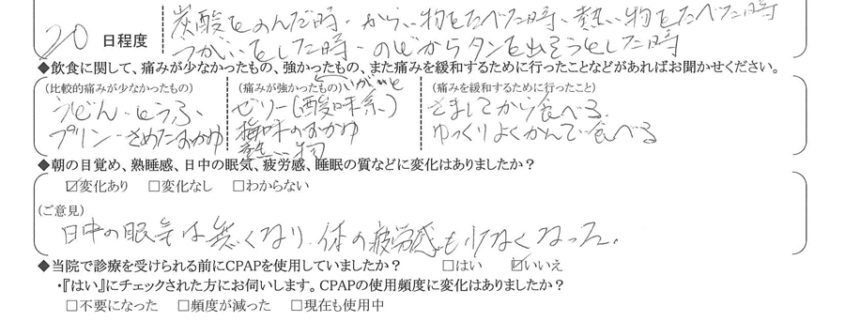 20 日程度
炭酸をのんだ時・からい物をたべた時、熱い物をたべた時
つがいをした時・のどからタンを出そうとした時
◆飲食に関して、痛みが少なかったもの、強かったもの、また痛みを緩和するために行ったことなどがあればお聞かせください。
(比較的痛みが少なかったもの)
うどん・とうふ
プリン・さめたおかゆ
(痛みが強かったもの)
ゼリー(酸味系)
梅味のおかゆ
熱い物
(痛みを緩和するために行ったこと)
さましてから食べる
ゆっくりよくかんで食べる
◆朝の目覚め、熟睡感、日中の眠気、疲労感、睡眠の質などに変化はありましたか？
☑変化あり □変化なし □わからない
(ご意見)
日中の眠気は無くなり、体の疲労感も少なくなった。
◆当院で診療を受けられる前にCPAPを使用していましたか？ □はい ☑いいえ
・『はい』にチェックされた方にお伺いします。CPAPの使用頻度に変化はありましたか？
□不要になった □頻度が減った □現在も使用中